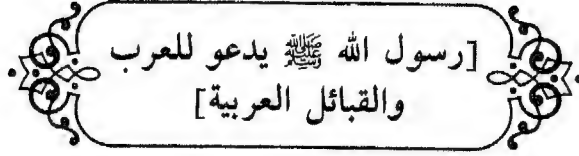 [رسول الله ﷺ يدعو للعرب
والقبائل العربية]